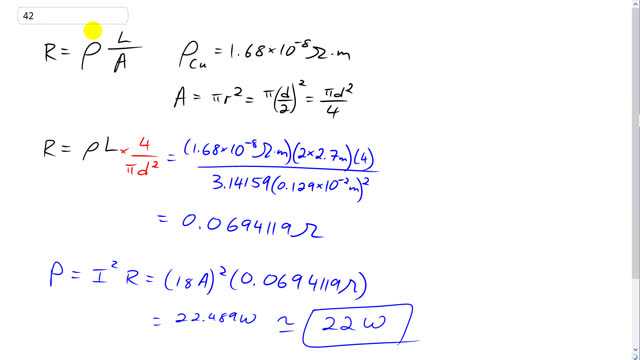 42
R = ρ L/A   ρ_Cu = 1.68×10⁻⁸ Ω·m
A = πr² = π(d/2)² = πd²/4
R = ρL × 4/πd² = (1.68×10⁻⁸ Ω·m)(2×2.7m)(4) / 3.14159(0.129×10⁻²m)²
= 0.0694119 Ω
P = I² R = (18A)² (0.0694119 Ω)
= 22.489W ≃ 22W